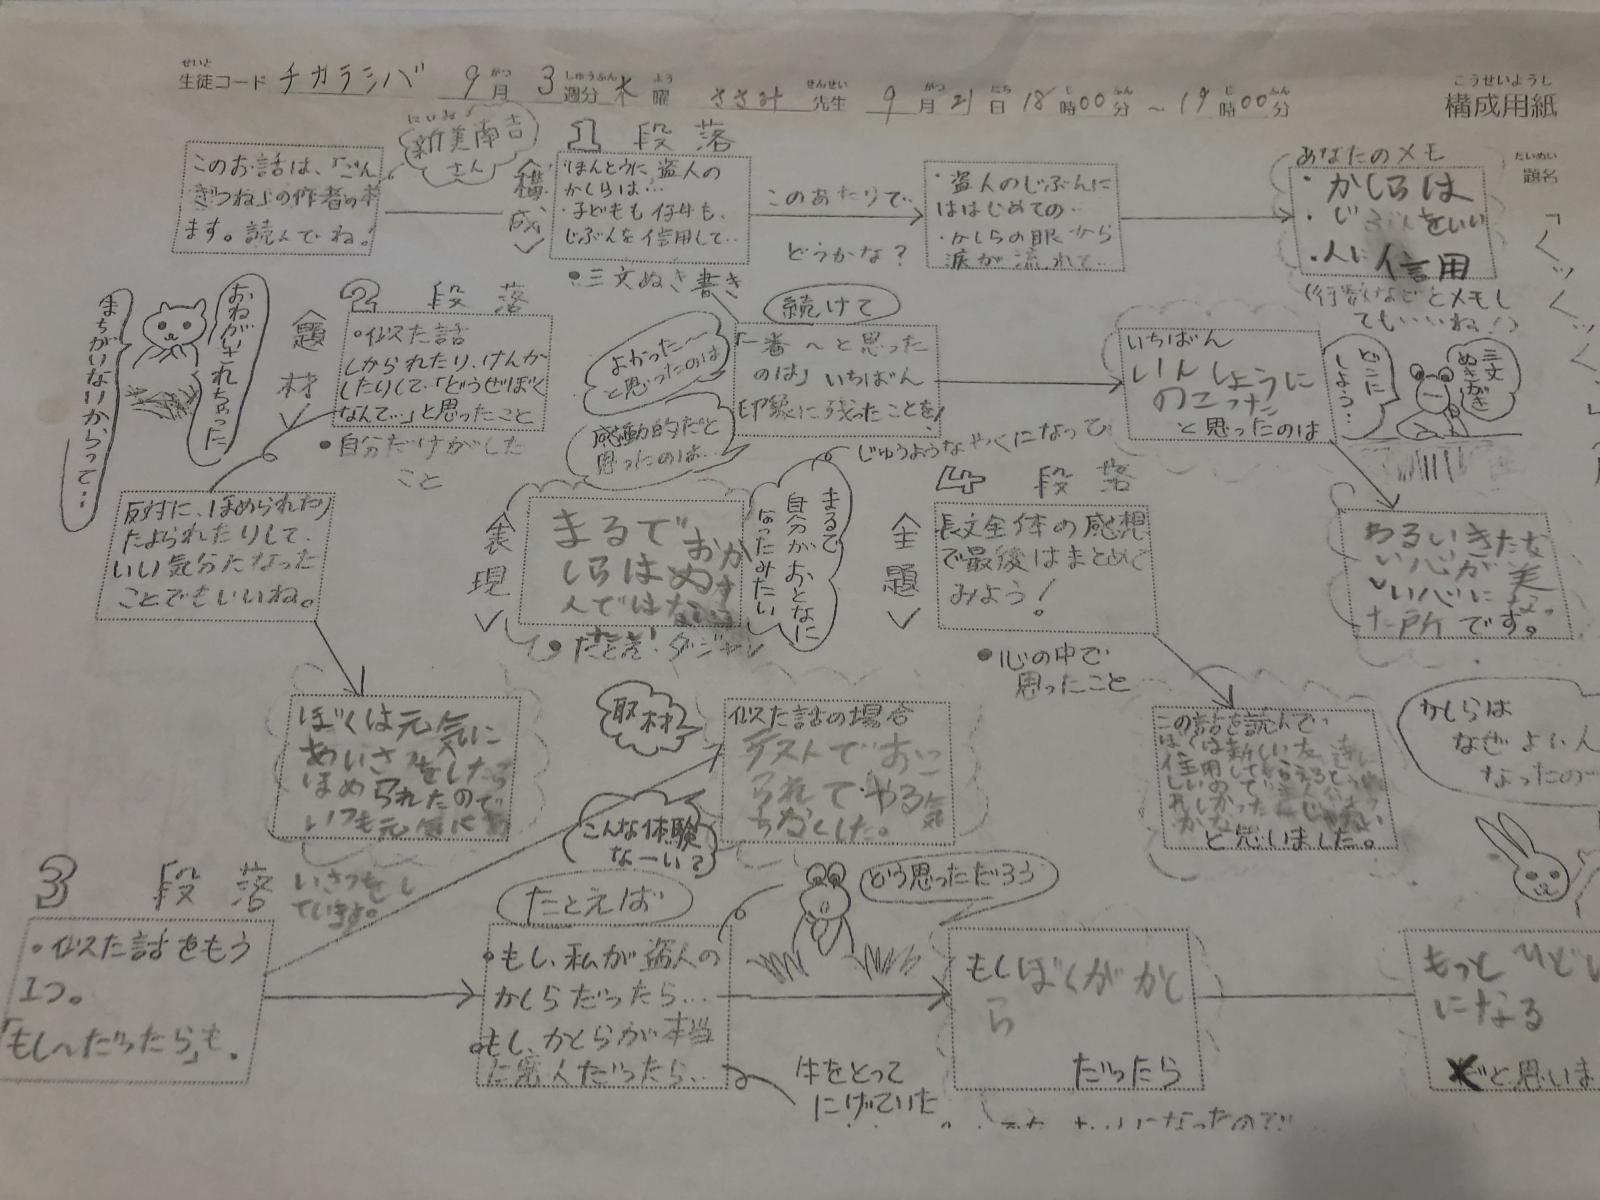 生徒コード チカラシバ 9月 3週分 木曜 ささみ先生 9月21日 18時00分 ~ 19時00分
構成用紙
題名
新美南吉
さん
このお話は、「ごん
ぎつね」の作者の本
ます。読んでね!
<構成>
1 段落
・ほんとうに盗人の
かしらは…
・子どもも仔牛も、
じぶんを信用して…
・三文ぬき書き
このあたりで
どうかな?
・盗人のじぶんに
ははじめての…
・かしらの眼から
涙が流れて…
あなたのメモ
・かしらは
・じぶんをいい
・人に信用
(行数などとメモし
てもいいね!)
<題材>
2 段落
・似た話
しかられたり、けんか
したりして、「どうせぼく
なんて…」と思ったこと
・自分だけがした
こと
おねがいされちゃった
まちがいないからって…
反対に、ほめられたり
たよられたりして、
いい気分になった
ことでもいいね。
ぼくは元気に
あいさつをしたら
ほめられたので
いつも元気に
いさつをし
ています。
続けて
「一番~と思った
のは」いちばん
印象に残ったことを!
よかった~
と思ったのは
感動的だと
思ったのは…
いちばん
いんしょうに
のこった
と思ったのは
どこに
しよう…
三文
ぬきがき
わるいきたな
い心が美
しい心になっ
た所です。
<表現>
まるでおか
しらはぬす
人ではない
・たとえ・ダジャレ
まるで
自分がおとなに
なったみたい
じゅうようなやくになって
<主題>
4 段落
長文全体の感想
で最後はまとめて
みよう!
・心の中で
思ったこと
この話を読んで
と思いました。
かしらは
なぜよい人
なったの
3 段落
・似た話をもう
1つ。
「もし~だったら」も。
取材
似た話の場合
テストでおこ
られてやる気
ちなくした。
こんな体験
なーい?
たとえば
・もし、私が盗人の
かしらだったら…
・もし、かしらが本当
に悪人だったら…
どう思っただろう
牛をとって
にげていた
もしぼくがかし
ら
だったら
もっとひどい
になる
と思いま